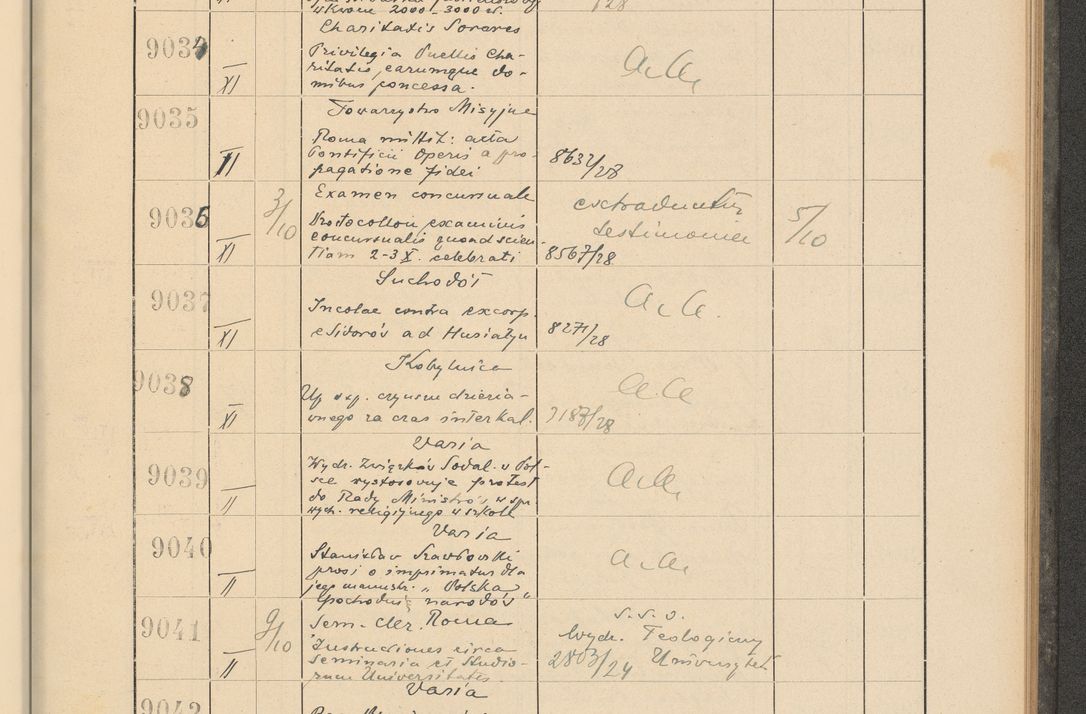 w kwocie 2000-3000 zł.
128
9034
XI
Charitatis Sorores
Privilegia Puellis Cha-
ritatis, earumque do-
mibus concessa.
a. a.
9035
XI
Towarzystwo Misyjne
Roma mittit: acta
Pontificii Operis a pro-
pagatione fidei
8632/28
9036
XI
3/10
Examen concursuale
Protocollon examinis
concursualis quoad scien-
tiam 2-3 X. celebrati
extraduntur
testimonia
8567/28
5/10
9037
XI
Suchodół
Incolae contra excorp.
e Sidorów ad Husiatyn
a. a.
8271/28
9038
XI
Kobylnica
czynszu dzierża-
wnego za czas interkal.
a. a
3183/28
9039
II
Varia
Wydz. Związków Sodal. w Pol-
sce wystosowuje protest
do Rady Ministrów w spr.
wych. religijnego w szkole
a. a.
9040
II
Varia
Stanisław
prosi o imprimatur dla
jego manuskr. „Polska
pochodnią narodów"
a. a.
9041
II
9/10
Sem. cler. Roma
Instructiones circa
seminaria et studio-
rum Universitates.
s. s. o.
Wydz. Teologiczny
2803/24 Uniwersytet
9042
Varia